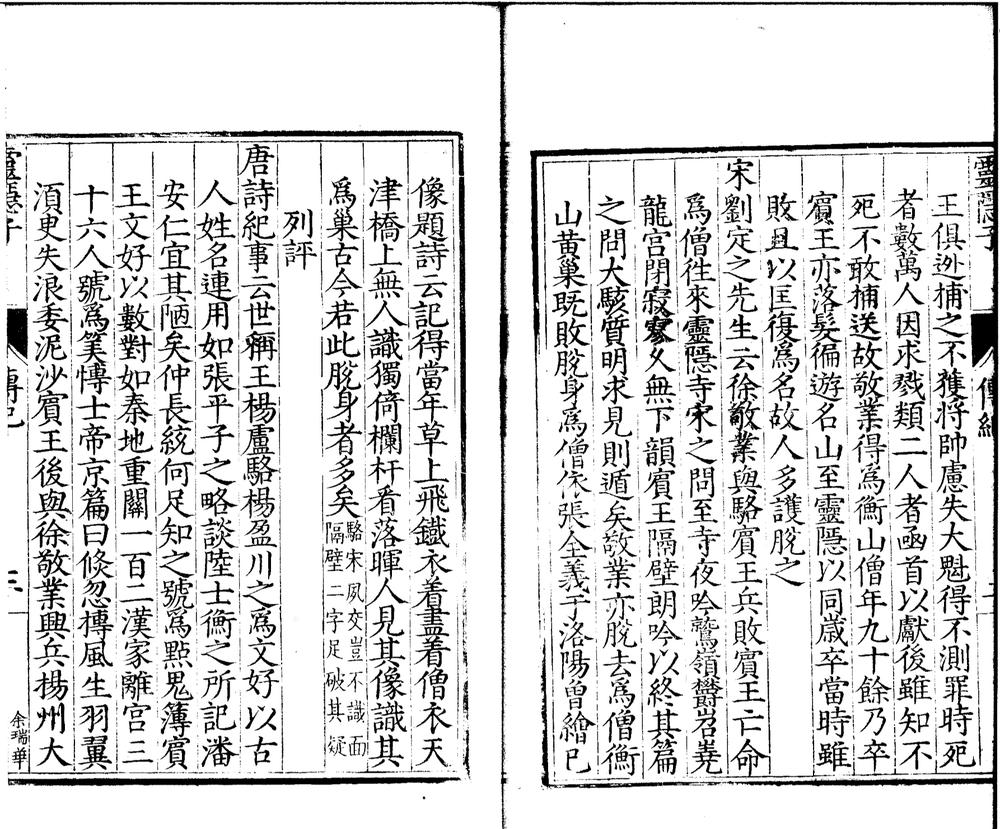 靈隱子
王俱迯捕之不獲將帥慮失大魁得不測罪時死
者數萬人因求戮類二人者函首以獻後雖知不
死不敢捕送故敬業得爲衡山僧年九十餘乃卒
賔王亦落髪徧遊名山至靈隱以同歳卒當時雖
敗且以匡復爲名故人多護脫之
宋劉定之先生云徐敬業與駱賔王兵敗賔王亡命
爲僧徃來靈隱寺宋之問至寺夜吟鷲嶺欝岧嶤
龍宮閉寂寥久無下韻賔王隔壁朗吟以終其篇
之問大駭質明求見則遁矣敬業亦脫去爲僧衡
山黃巢旣敗脫身爲僧依張全義于洛陽曾繪巳
像題詩云記得當年草上飛鐵衣着盡着僧衣天
津橋上無人識獨倚欄杆看落暉人見其像識其
爲巢古今若此脫身者多矣駱宋夙交豈不識面
隔壁二字足破其疑
列評
唐詩紀事云世稱王楊盧駱楊盈川之爲文好以古
人姓名連用如張平子之略談陸士衡之所記潘
安仁宜其陋矣仲長統何足知之號爲㸃鬼簿賔
王文好以數對如秦地重關一百二漢家離宮三
十六人號爲筭愽士帝京篇曰倐忽摶風生羽翼
湏臾失浪委泥沙賔王後與徐敬業興兵揚州大
靈隱子
傳記
余瑞華